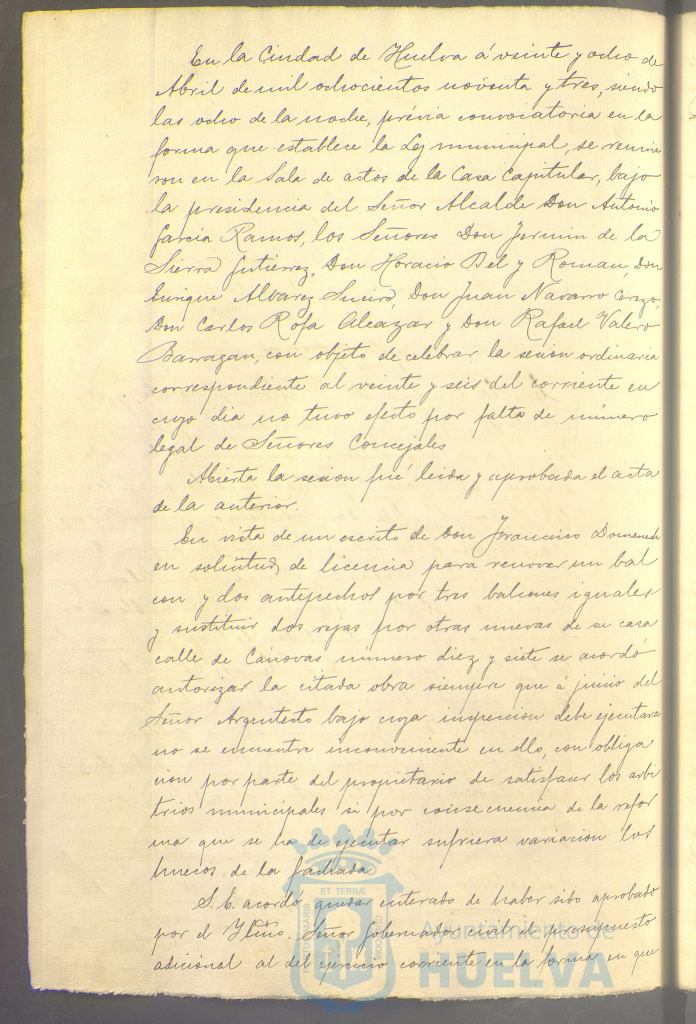 En la Ciudad de Huelva á veinte y ocho de
Abril de mil ochocientos noventa y tres, siendo
las ocho de la noche, prévia convocatoria en la
forma que establece la Ley municipal, se reunie
ron en la Sala de actos de la Casa Capitular, bajo
la presidencia del Señor Alcalde Don Antonio
Garcia Ramos, los Señores Don Fermin de la
Sierra Gutierrez, Don Horacio Bel y Roman, Don
Enrique Alvarez Don Juan Navarro
Don Carlos Rofa Alcazar y Don Rafael Valero
Barragan, con objeto de celebrar la sesion ordinaria
correspondiente al veinte y seis del corriente en
cuyo dia no tuvo efecto por falta de número
legal de Señores Concejales
Abierta la sesion fué leida y aprobada el acta
de la anterior.
En vista de un escrito de Don Francisco Domenech
en solicitud de licencia para renovar un bal
con y dos antepechos por tres balcones iguales
y sustituir dos rejas por otras nuevas de su casa
calle de Cánovas número diez y siete se acordó
autorizar la citada obra siempre que á juicio del
Señor Arquitecto bajo cuya inspeccion debe ejecutarse
no se encuentre inconveniente en ello, con obliga
cion por parte del propietario de satisfacer los arbi
trios municipales si por consecuencia de la refor
ma que se ha de ejecutar sufriera variacion los
huecos de la fachada
S. E. acordó quedar enterado de haber sido aprobado
por el Yltmo. Señor Gobernador civil el presupuesto
adicional al del ejercicio corriente en la forma en que
ET TERRÆ
Ayuntamiento de
HUELVA